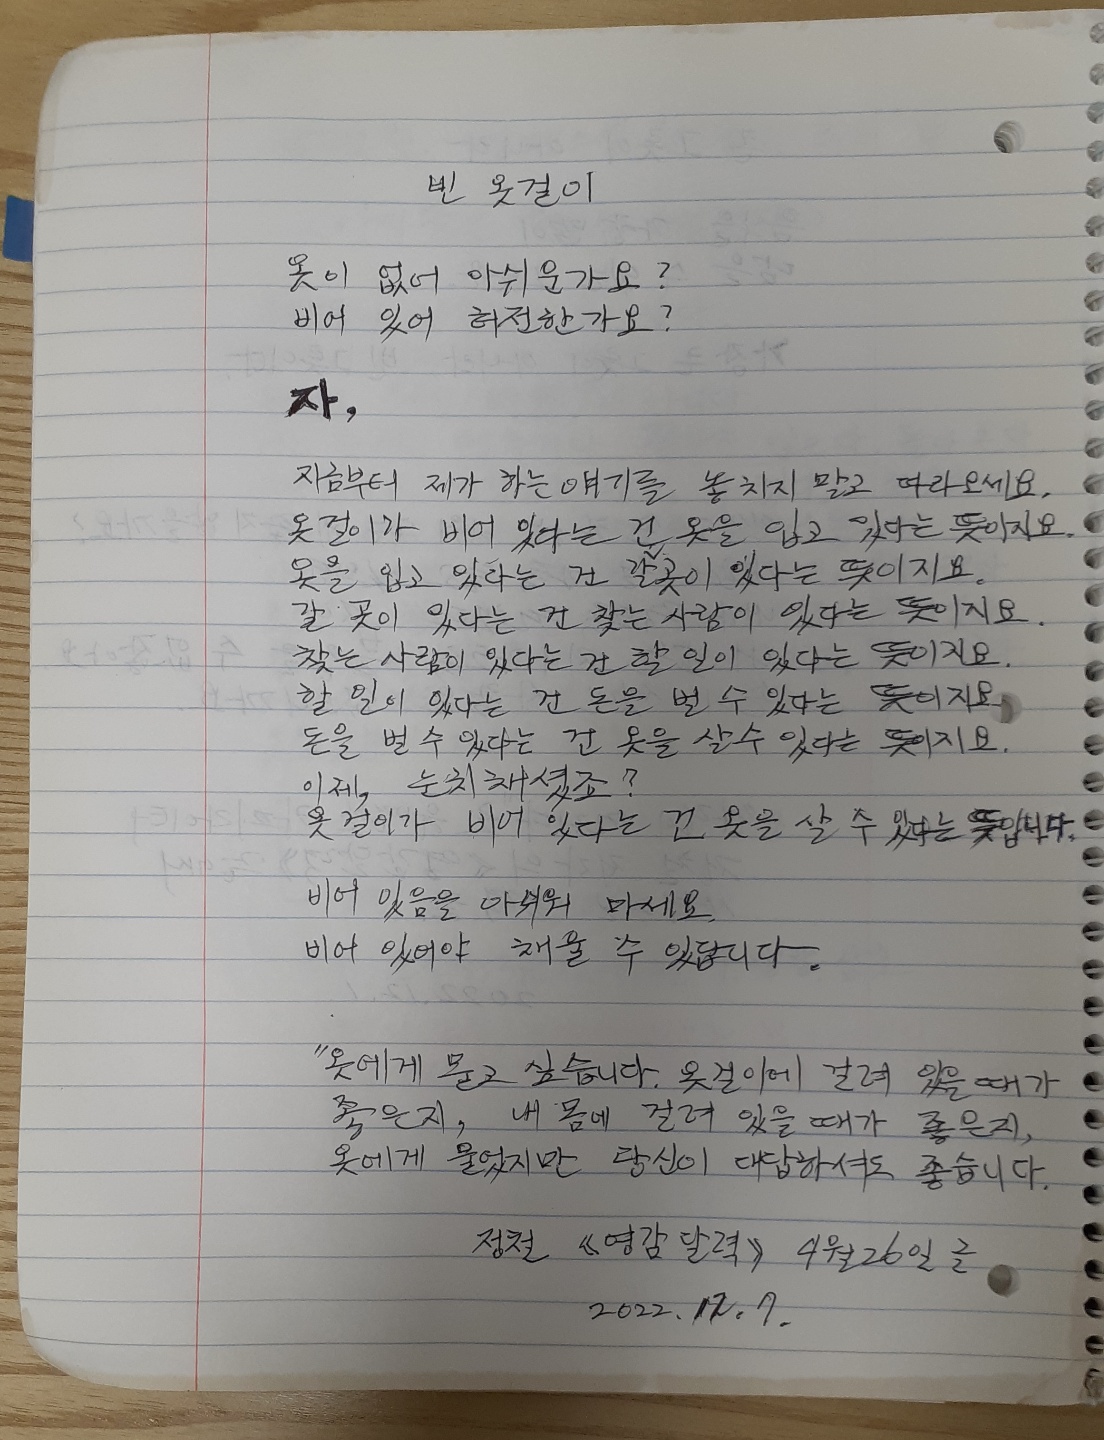 빈 옷걸이
옷이 없어 아쉬운가요?
비어 있어 허전한가요?
자,
지금부터 제가 하는 얘기를 놓치지 말고 따라오세요.
옷걸이가 비어 있다는 건 옷을 입고 있다는 뜻이지요.
옷을 입고 있다는 건 갈 곳이 있다는 뜻이지요.
갈 곳이 있다는 건 찾는 사람이 있다는 뜻이지요.
찾는 사람이 있다는 건 할 일이 있다는 뜻이지요.
할 일이 있다는 건 돈을 벌 수 있다는 뜻이지요.
돈을 벌 수 있다는 건 옷을 살 수 있다는 뜻이지요.
이제, 눈치채셨죠?
옷걸이가 비어 있다는 건 옷을 살 수 있다는 뜻입니다.
비어 있음을 아쉬워 마세요.
비어 있어야 채울 수 있답니다.
"옷에게 묻고 싶습니다. 옷걸이에 걸려 있을 때가
좋은지, 내 몸에 걸려 있을 때가 좋은지,
옷에게 물었지만 당신이 대답하셔도 좋습니다.
정철 《영감달력》 4월 26일 글
2022. 12. 7.